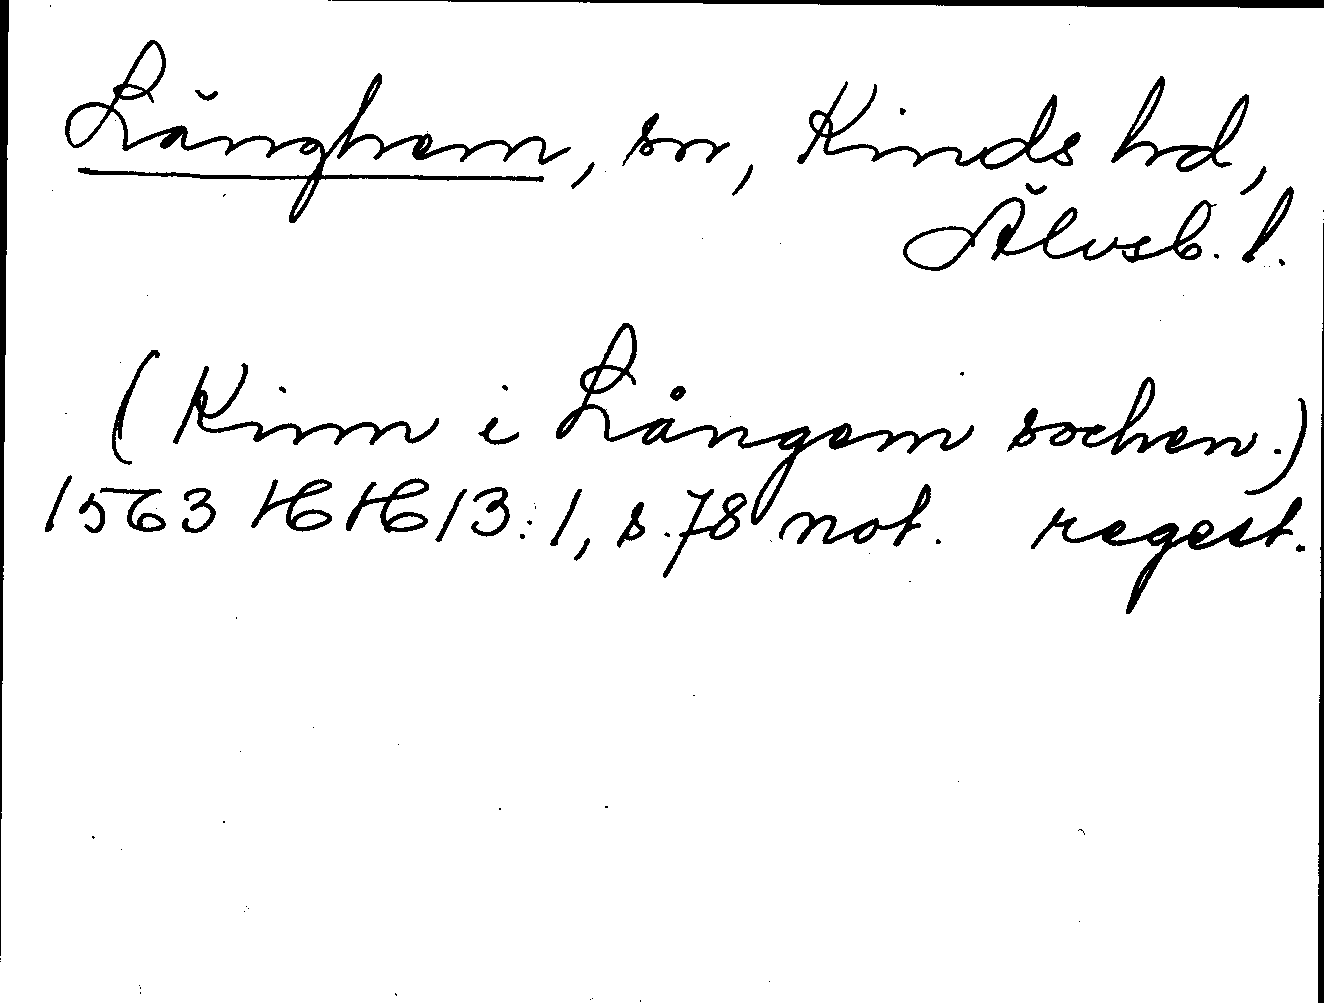 Länghem, sn, Kinds hd,
Älvsb. l.
(Kinn i Långem sochen.)
1563 HH 13:1, s. 78 not. regest.